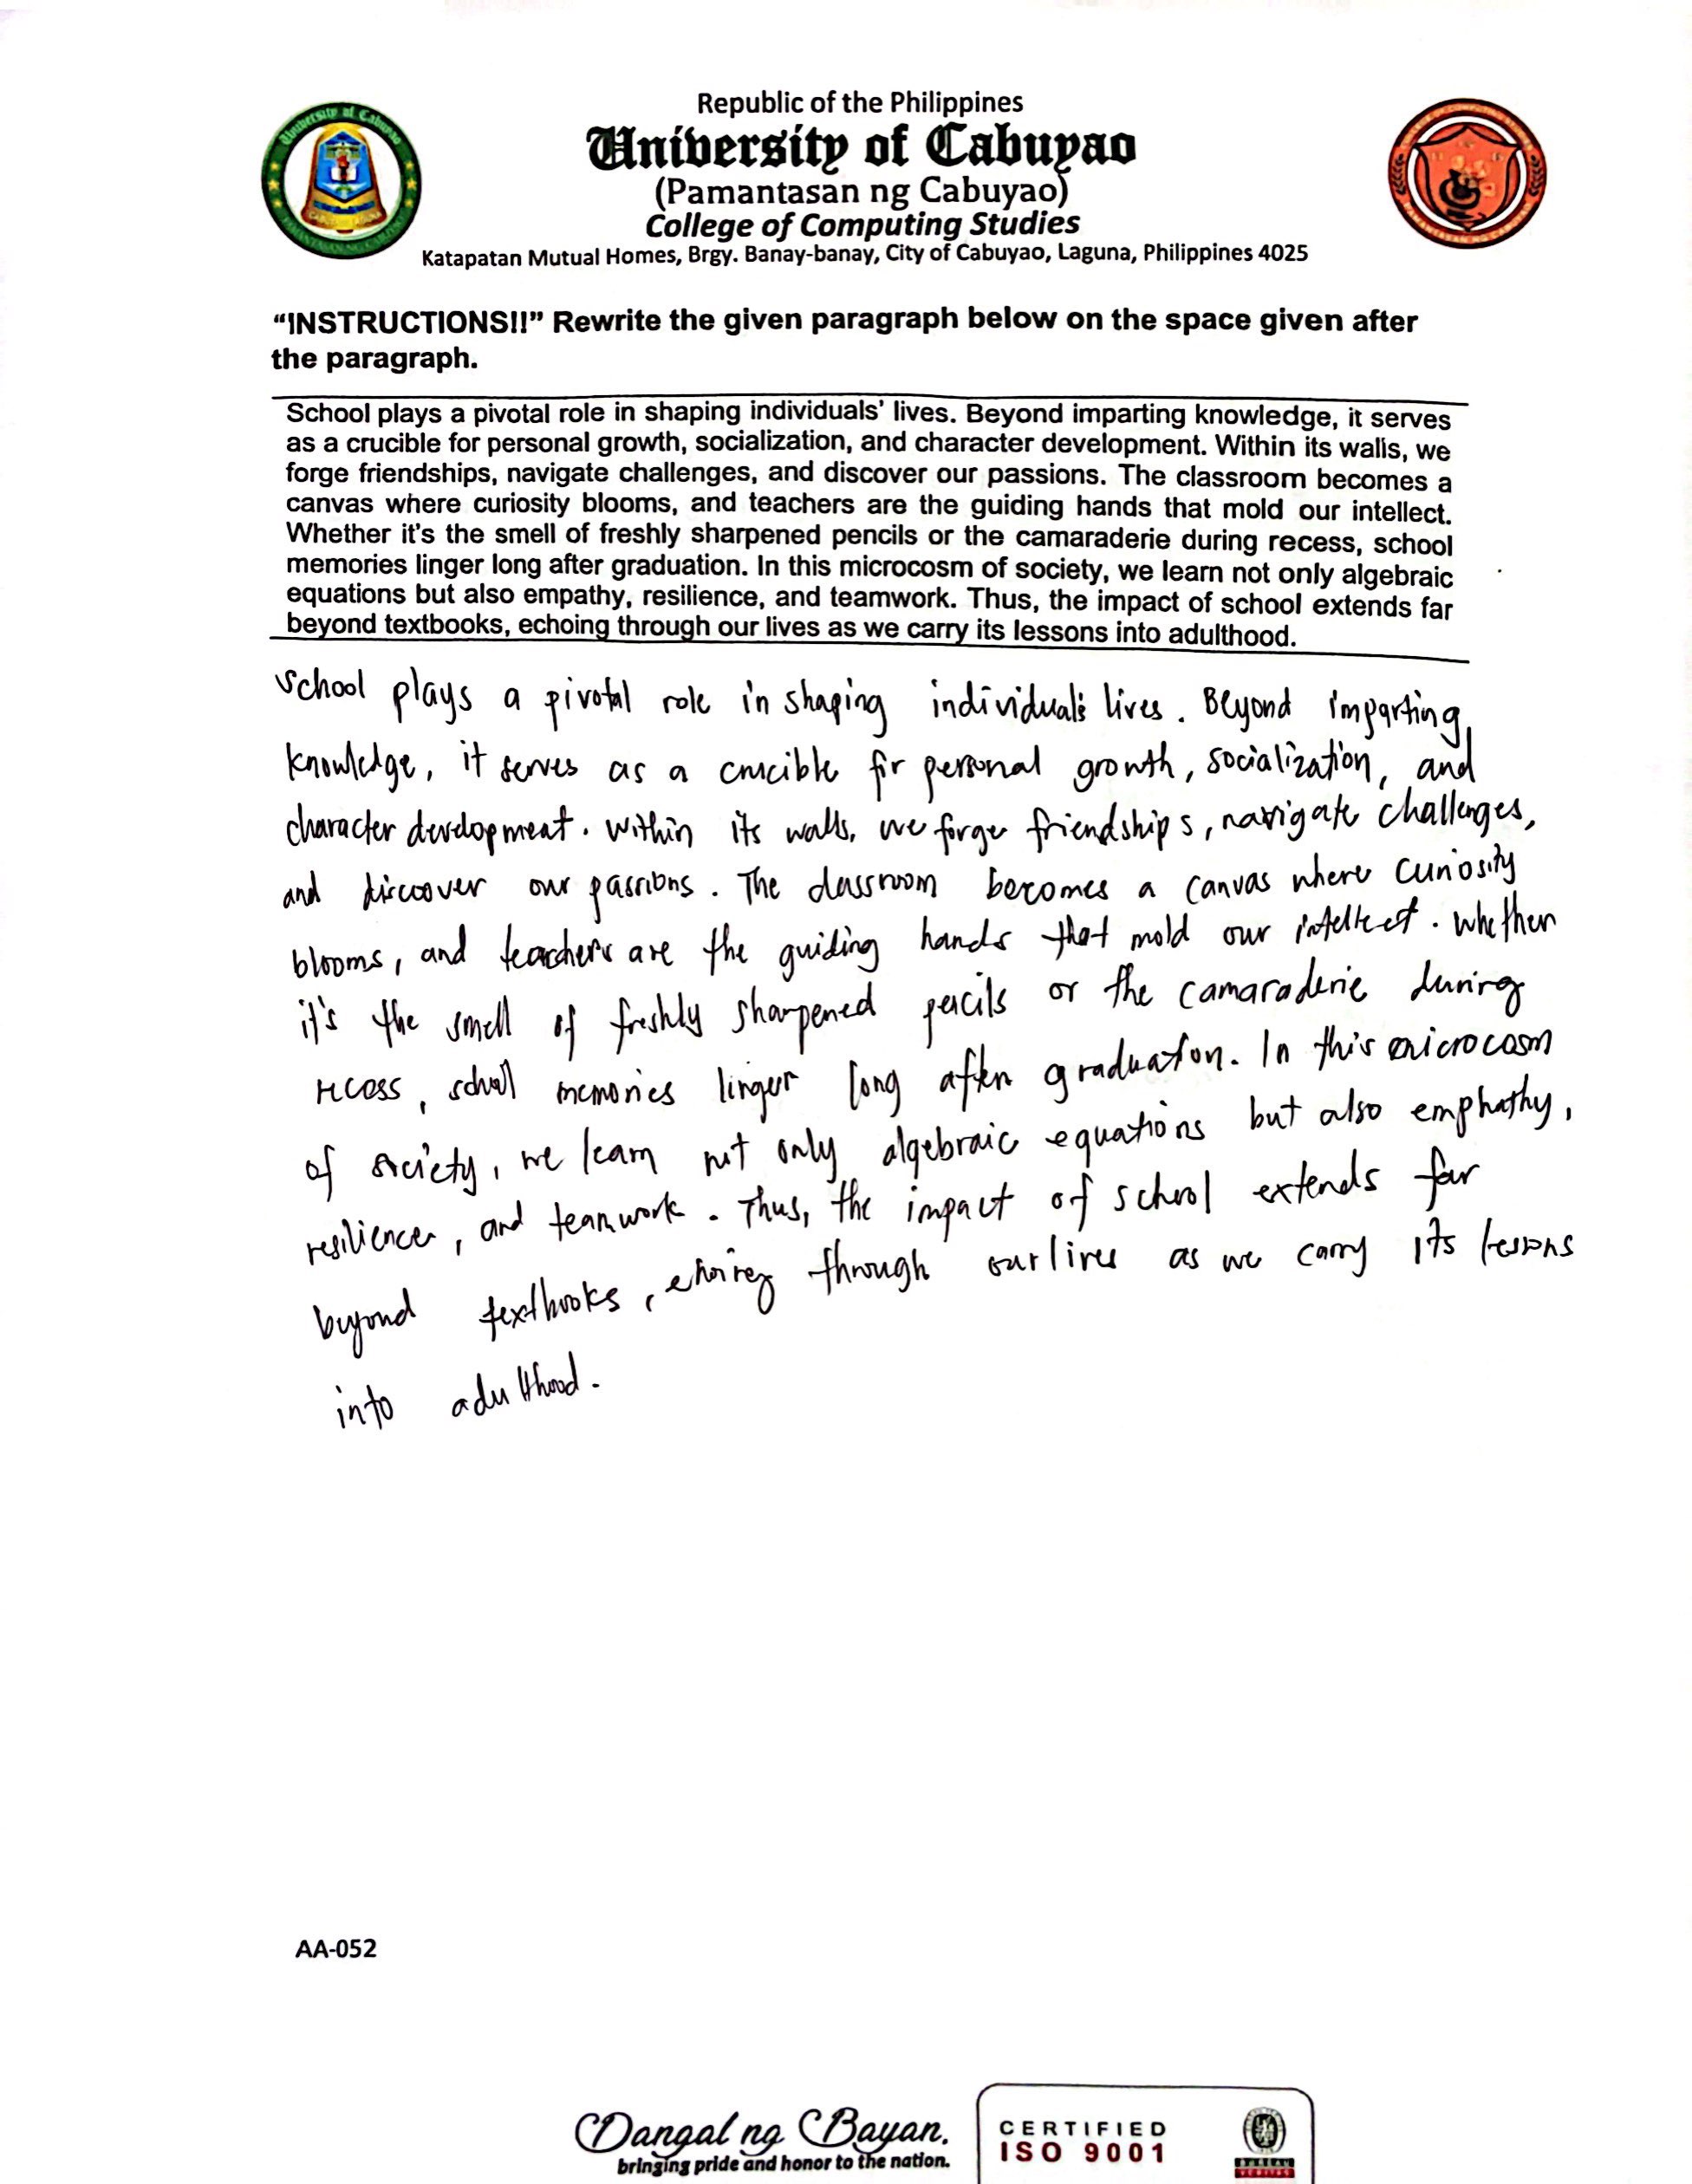 Republic of the Philippines
University of Cabuyao
(Pamantasan ng Cabuyao)
College of Computing Studies
Katapatan Mutual Homes, Brgy. Banay-banay, City of Cabuyao, Laguna, Philippines 4025
“INSTRUCTIONS!!” Rewrite the given paragraph below on the space given after
the paragraph.
School plays a pivotal role in shaping individuals' lives. Beyond imparting knowledge, it serves
as a crucible for personal growth, socialization, and character development. Within its walls, we
forge friendships, navigate challenges, and discover our passions. The classroom becomes a
canvas where curiosity blooms, and teachers are the guiding hands that mold our intellect.
Whether it's the smell of freshly sharpened pencils or the camaraderie during recess, school
memories linger long after graduation. In this microcosm of society, we learn not only algebraic
equations but also empathy, resilience, and teamwork. Thus, the impact of school extends far
beyond textbooks, echoing through our lives as we carry its lessons into adulthood.
School plays a pivotal role in shaping individual's lives. Beyond imparting
knowledge, it serves as a crucible for personal growth, socialization, and
character development. Within its walls, we forge friendships, navigate challenges,
and discover our passions. The classroom becomes a canvas where curiosity
blooms, and teachers are the guiding hands that mold our intellect. Whether
it's the smell of freshly sharpened pecils or the camaraderie during
recess, school memories linger long after graduation. In this microcosm
of society, we learn not only algebraic equations but also emphathy,
resilience, and teamwork. Thus, the impact of school extends far
beyond textbooks, echoing through our lives as we carry its lessons
into adulthood.
AA-052
Dangal ng Bayan.
bringing pride and honor to the nation.
CERTIFIED
ISO 9001
BUREAU
VERITAS